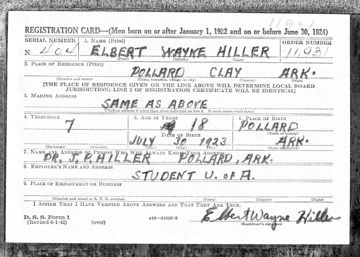 11931
REGISTRATION CARD—(Men born on or after January 1, 1922 and on or before June 30, 1924)
SERIAL NUMBER 1. NAME (Print) ORDER NUMBER
N 404 ELBERT WAYNE HILLER 11,931
(First) (Middle) (Last)
2. PLACE OF RESIDENCE (Print)
POLLARD CLAY ARK.
[THE PLACE OF RESIDENCE GIVEN ON THE LINE ABOVE WILL DETERMINE LOCAL BOARD
JURISDICTION; LINE 2 OF REGISTRATION CERTIFICATE WILL BE IDENTICAL]
3. MAILING ADDRESS
SAME AS ABOVE
4. TELEPHONE 5. AGE IN YEARS 6. PLACE OF BIRTH
7 18 POLLARD
DATE OF BIRTH
JULY 30 1923 ARK.
7. NAME AND ADDRESS OF PERSON WHO WILL ALWAYS KNOW YOUR ADDRESS
DR. J. P. HILLER POLLARD, ARK.
8. EMPLOYER'S NAME AND ADDRESS
STUDENT U. of A.
9. PLACE OF EMPLOYMENT OR BUSINESS
I AFFIRM THAT I HAVE VERIFIED ABOVE ANSWERS AND THAT THEY ARE TRUE.
D. S. S. Form 1
(Revised 6-1-42) (over) Elbert Wayne Hiller
(Registrant's signature)